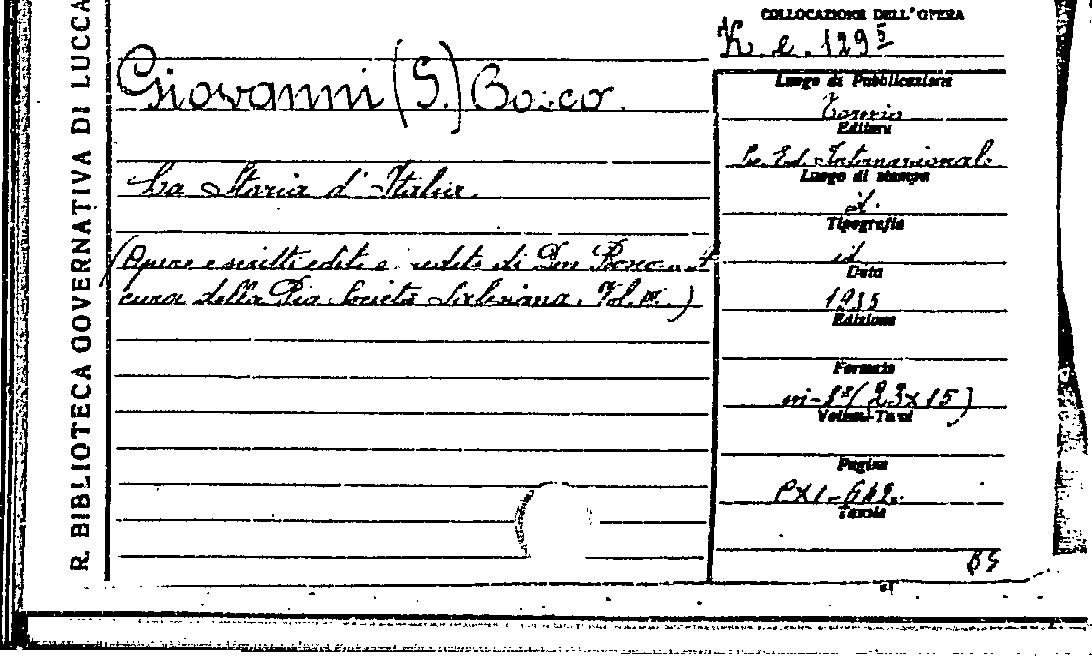 R. BIBLIOTECA GOVERNATIVA DI LUCCA
Giovanni (S.) Bosco.
La Storia d'Italia.
(Opere e scritti editi e inediti di Don Bosco
cura della Pia Società Salesiana. Vol.
COLLOCAZIONE DELL'OPERA
K. e. 129 5
Luogo di Pubblicazioni
Torino
Editore
So. Ed. Internazional.
Luogo di stampa
id.
Tipografia
id.
Data
1935
Edizione
Formato
in-8°(23x15)
Volumi-Tomi
Pagine
PXI-642.
Tavole
BS